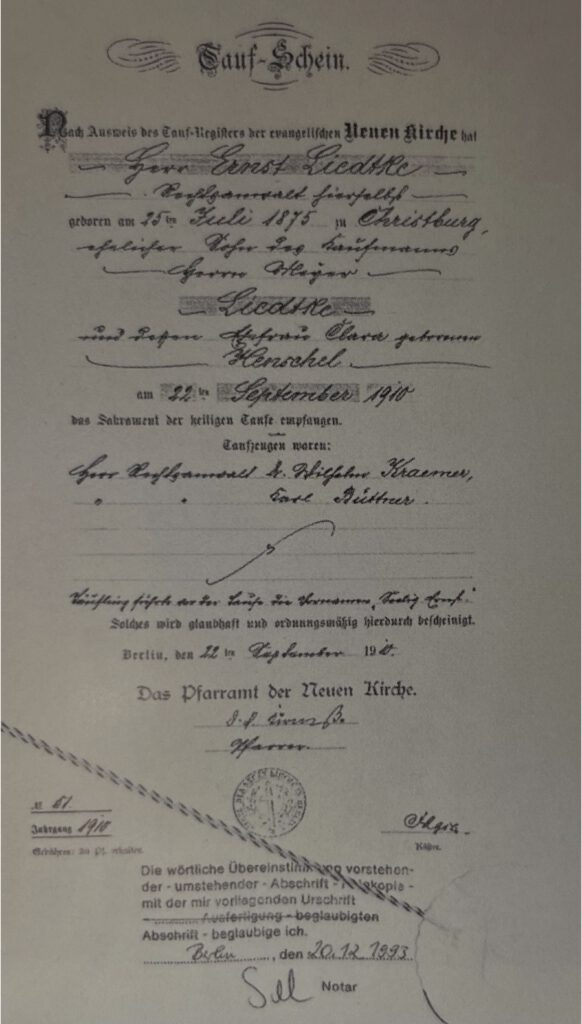 Tauf-Schein.
Nach Ausweis des Tauf-Registers der evangelischen Neuen Kirche hat
Herr Ernst Liedtke
Rechtsanwalt hierselbst
geboren am 25ten Juli 1875 zu Christburg,
ehelicher Sohn des Kaufmanns
Herrn Meyer
Liedtke
und dessen Ehefrau Clara geborenen
Henschel
am 22ten September 1910
das Sakrament der heiligen Taufe empfangen.
Taufzeugen waren:
Herr Rechtsanwalt Dr. Wilhelm Kraemer,
" " Karl Büttner.
Täufling führte vor der Taufe die Vornamen „Seelig Ernst“
Solches wird glaubhaft und ordnungsmäßig hierdurch bescheinigt.
Berlin, den 22ten September 1910.
Das Pfarramt der Neuen Kirche.
Pfarrer.
№ 61
Jahrgang 1910
Gebühren: 50 Pf. erhalten.
Küster.
Die wörtliche Übereinstimmung vorstehen-
der - umstehender - Abschrift - Fotokopie -
mit der mir vorliegenden Urschrift
- Ausfertigung - beglaubigten
Abschrift - beglaubige ich.
Berlin, den 20.12.1993
Notar